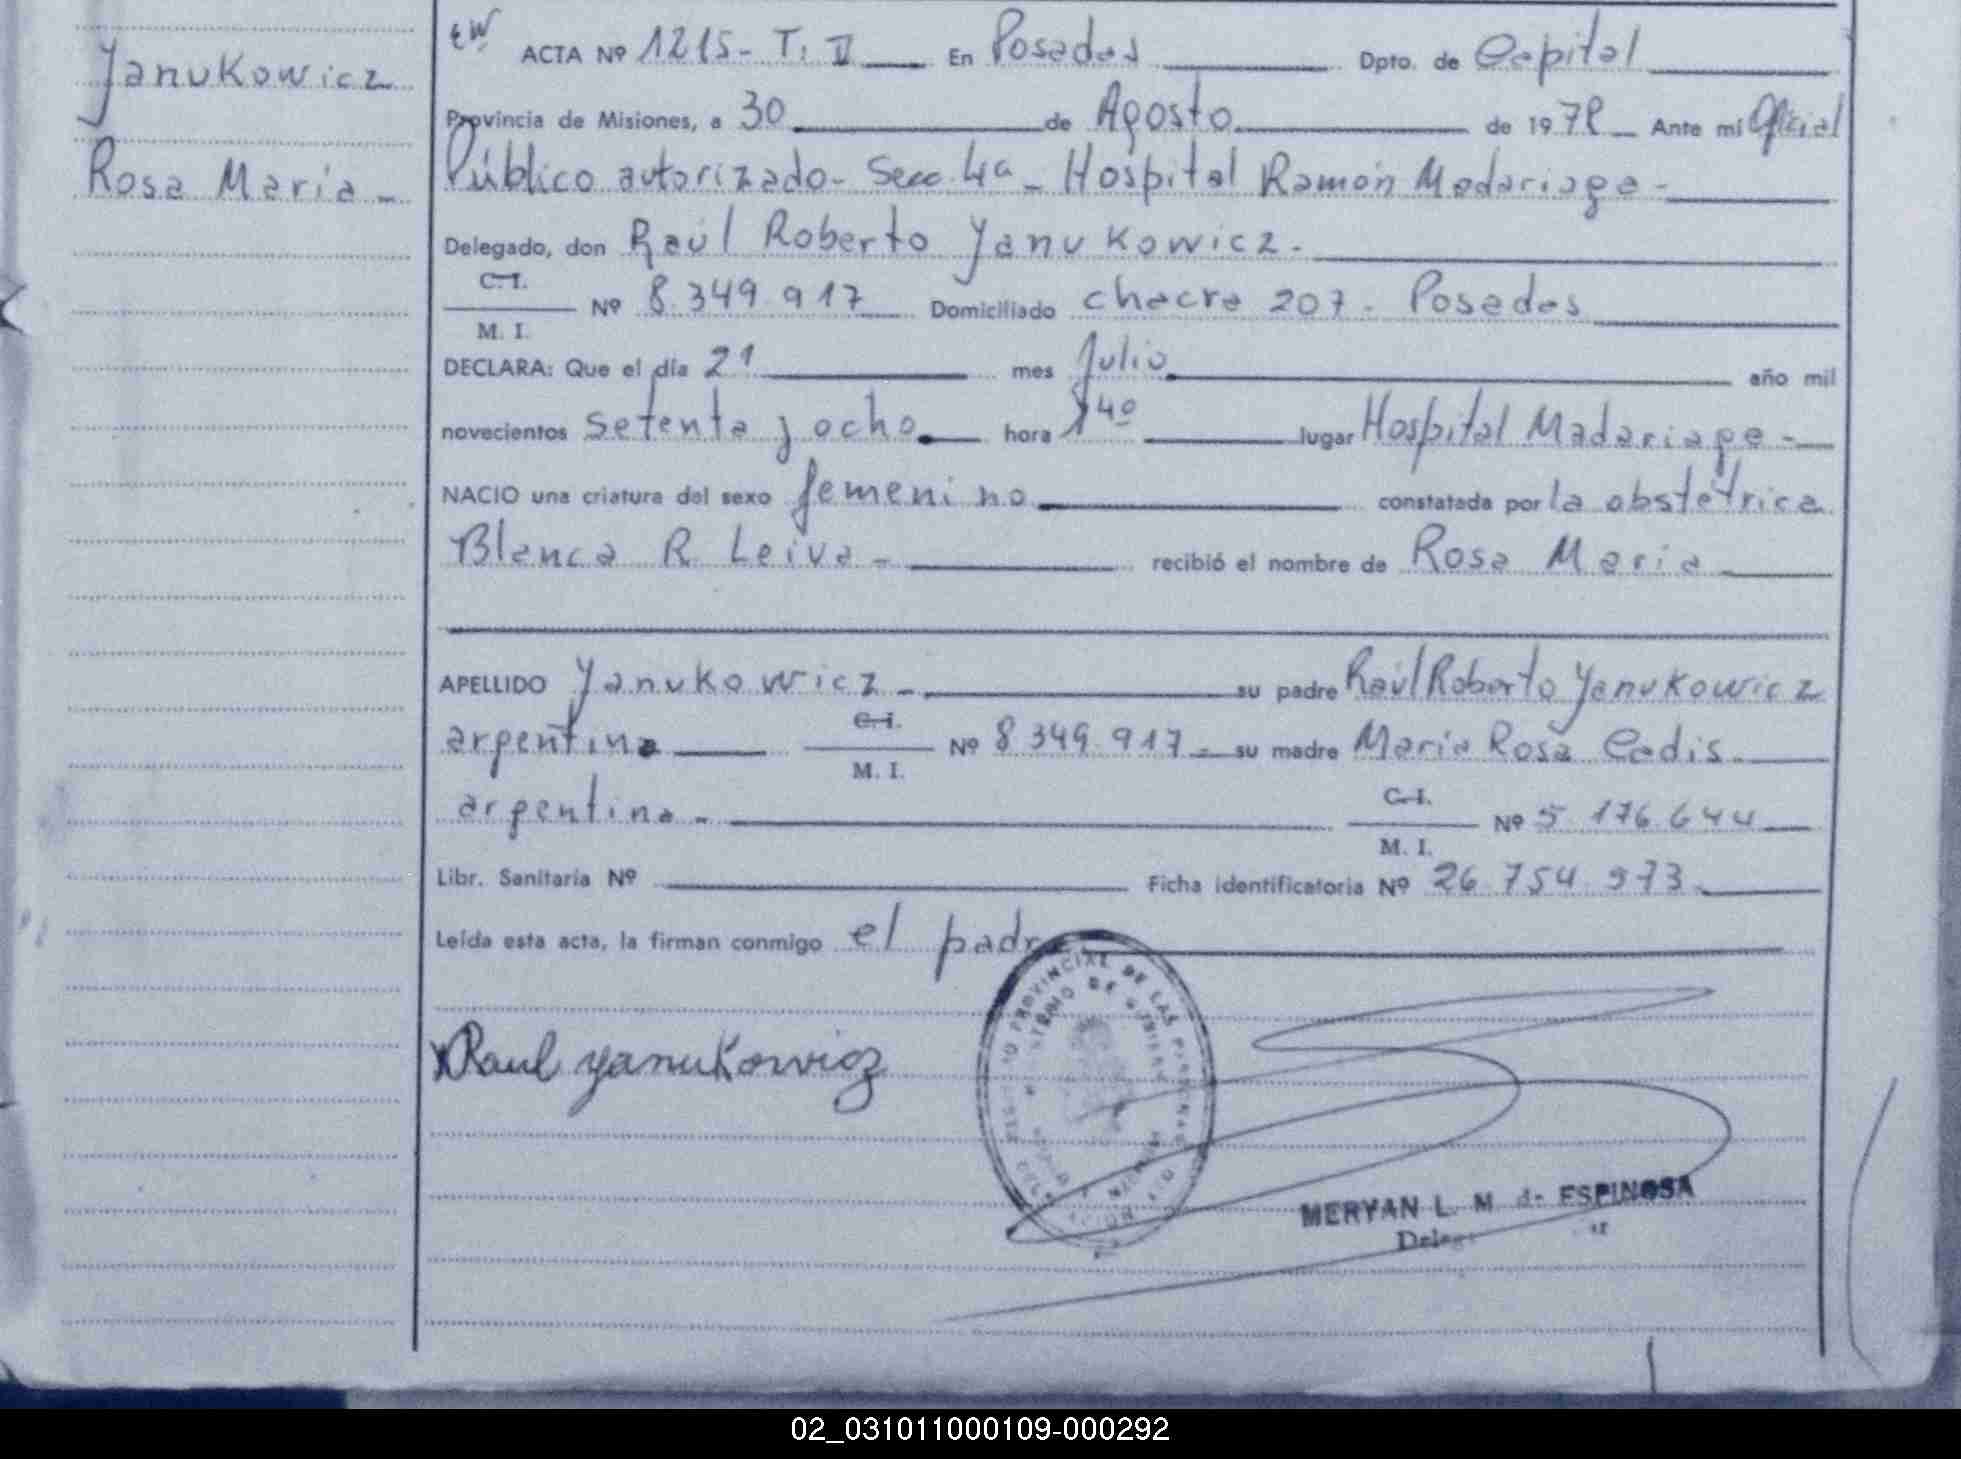 Yanukowicz
Rosa María -
ACTA Nº 1215- T. II En Posadas Dpto. de Capital
Provincia de Misiones, a 30 de Agosto de 1978 Ante mí Oficial
Público autorizado- Secc 4a - Hospital Ramón Madariaga -
Delegado, don Raúl Roberto Yanukowicz.
C. I.
M. I. Nº 8.349.917 Domiciliado chacra 207 - Posadas
DECLARA: Que el día 21 mes Julio año mil
novecientos setenta y ocho hora 1 40 lugar Hospital Madariaga -
NACIO una criatura del sexo femenino constatada por la obstétrica
Blanca R. Leiva - recibió el nombre de Rosa María
APELLIDO Yanukowicz - su padre Raúl Roberto Yanukowicz
argentina C. I.
M. I. Nº 8.349.917 - su madre María Rosa Cadis
argentina - C. I.
M. I. Nº 5.176.644
Libr. Sanitaria Nº Ficha identificatoria Nº 26.754.973
Leída esta acta, la firman conmigo el padre
Raul Yanukowicz
MERYAN L. M de ESPINOSA
02_031011000109-000292